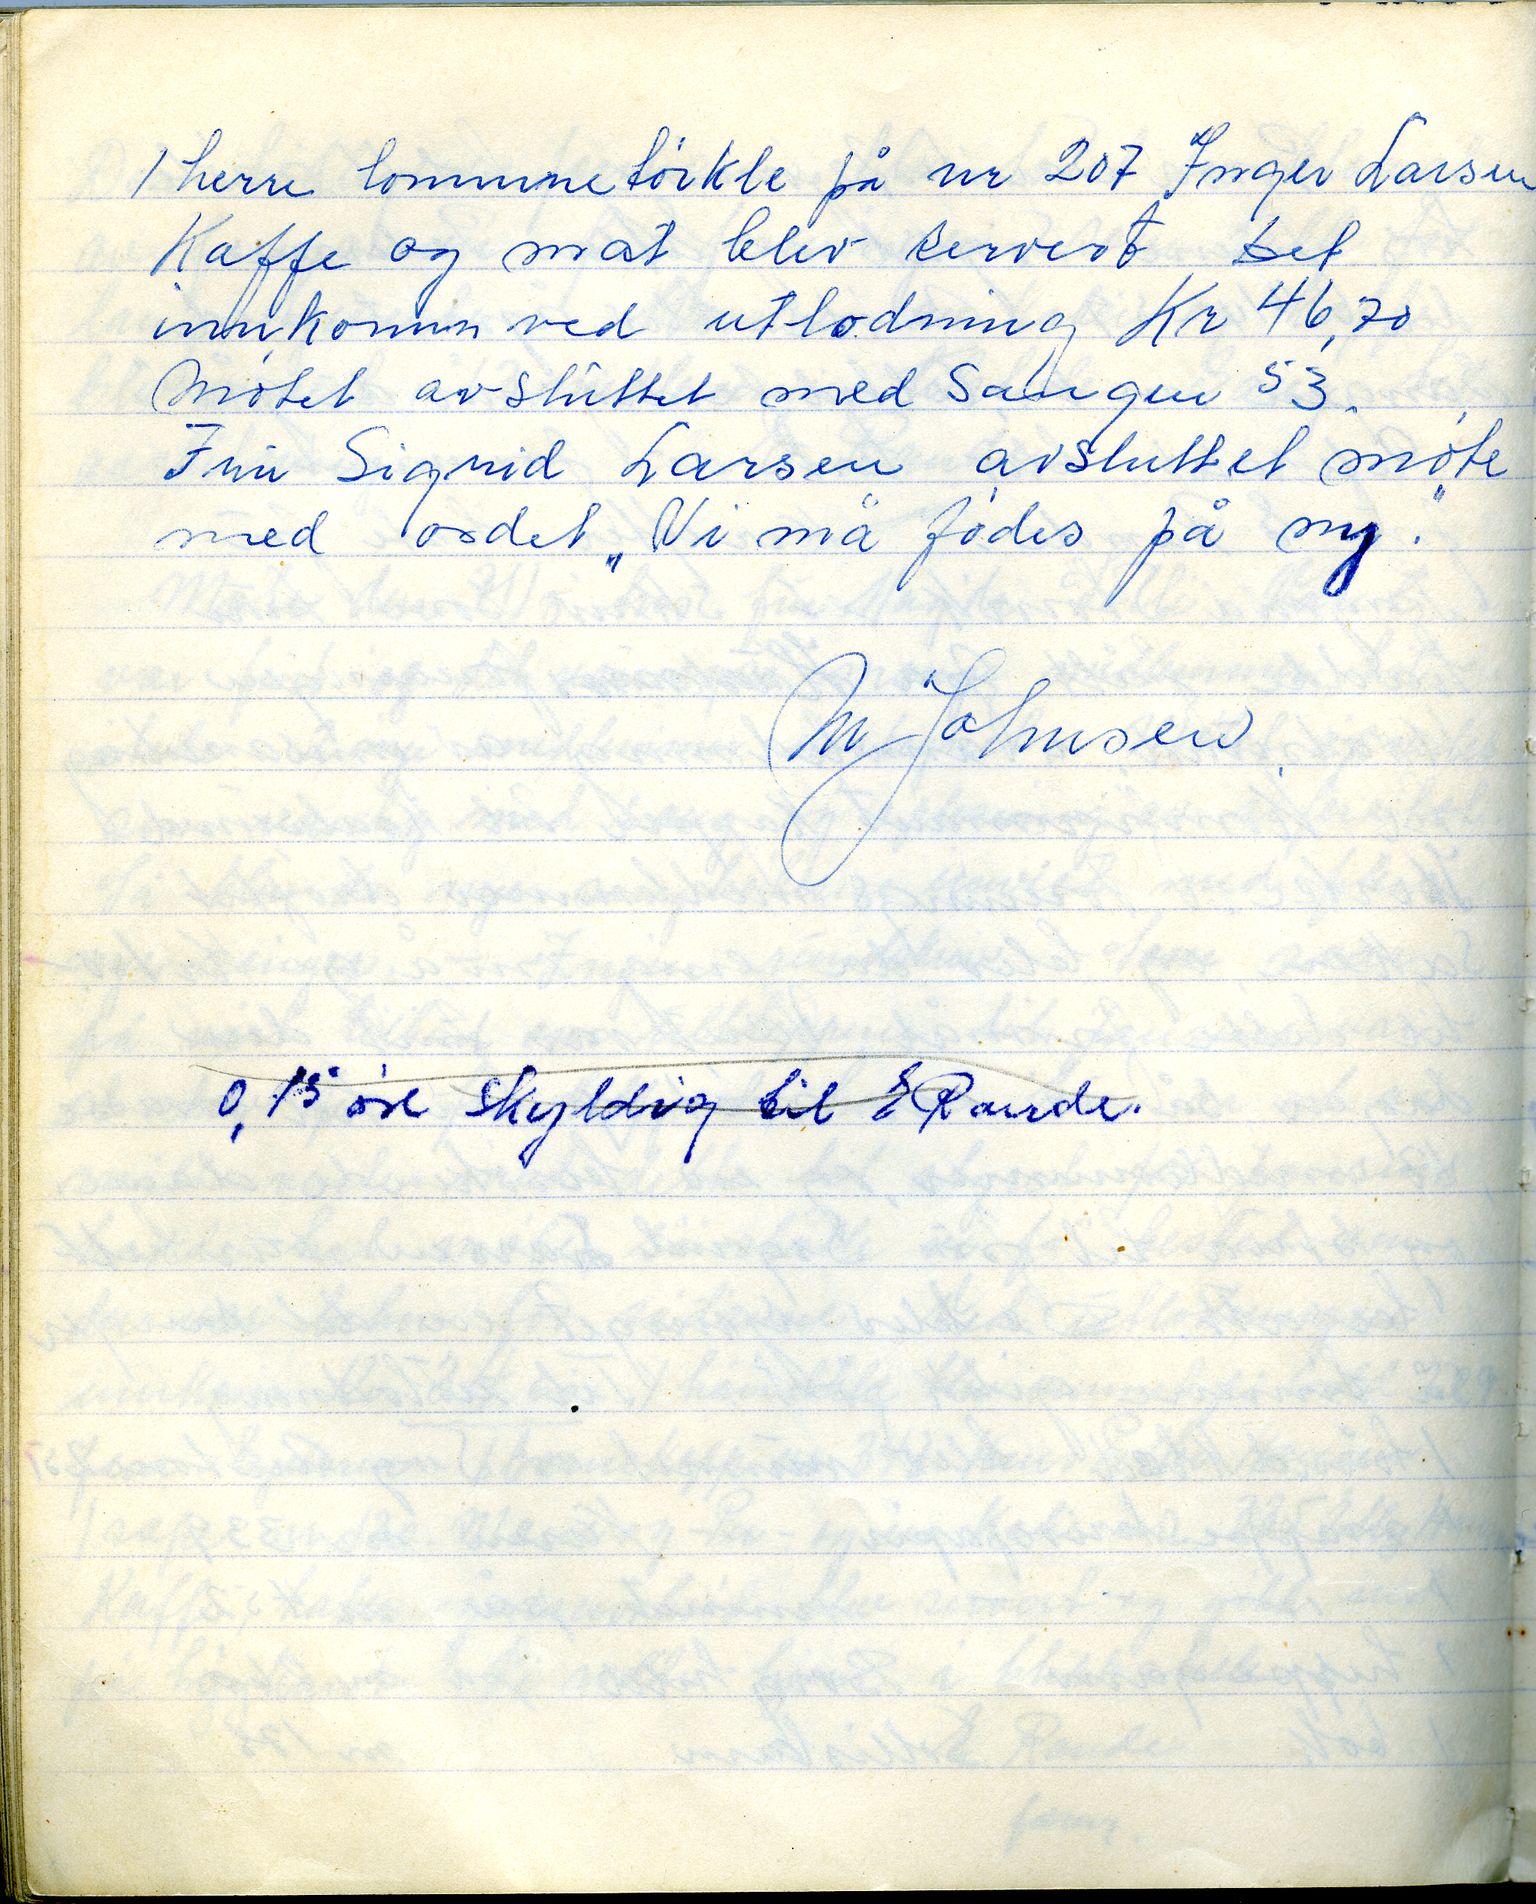 1 herre lommetörkle på nr 207 Inger Larsen
Kaffe og mat blev servert, det
innkomm ved utlodning Kr 46,70
Mötet avsluttet med Sangen 53.
Fru Sigrid Larsen avsluttet möte
med ordet „Vi må födes på ny".
M Johnsen
0,15 öre skyldig til E Rande.